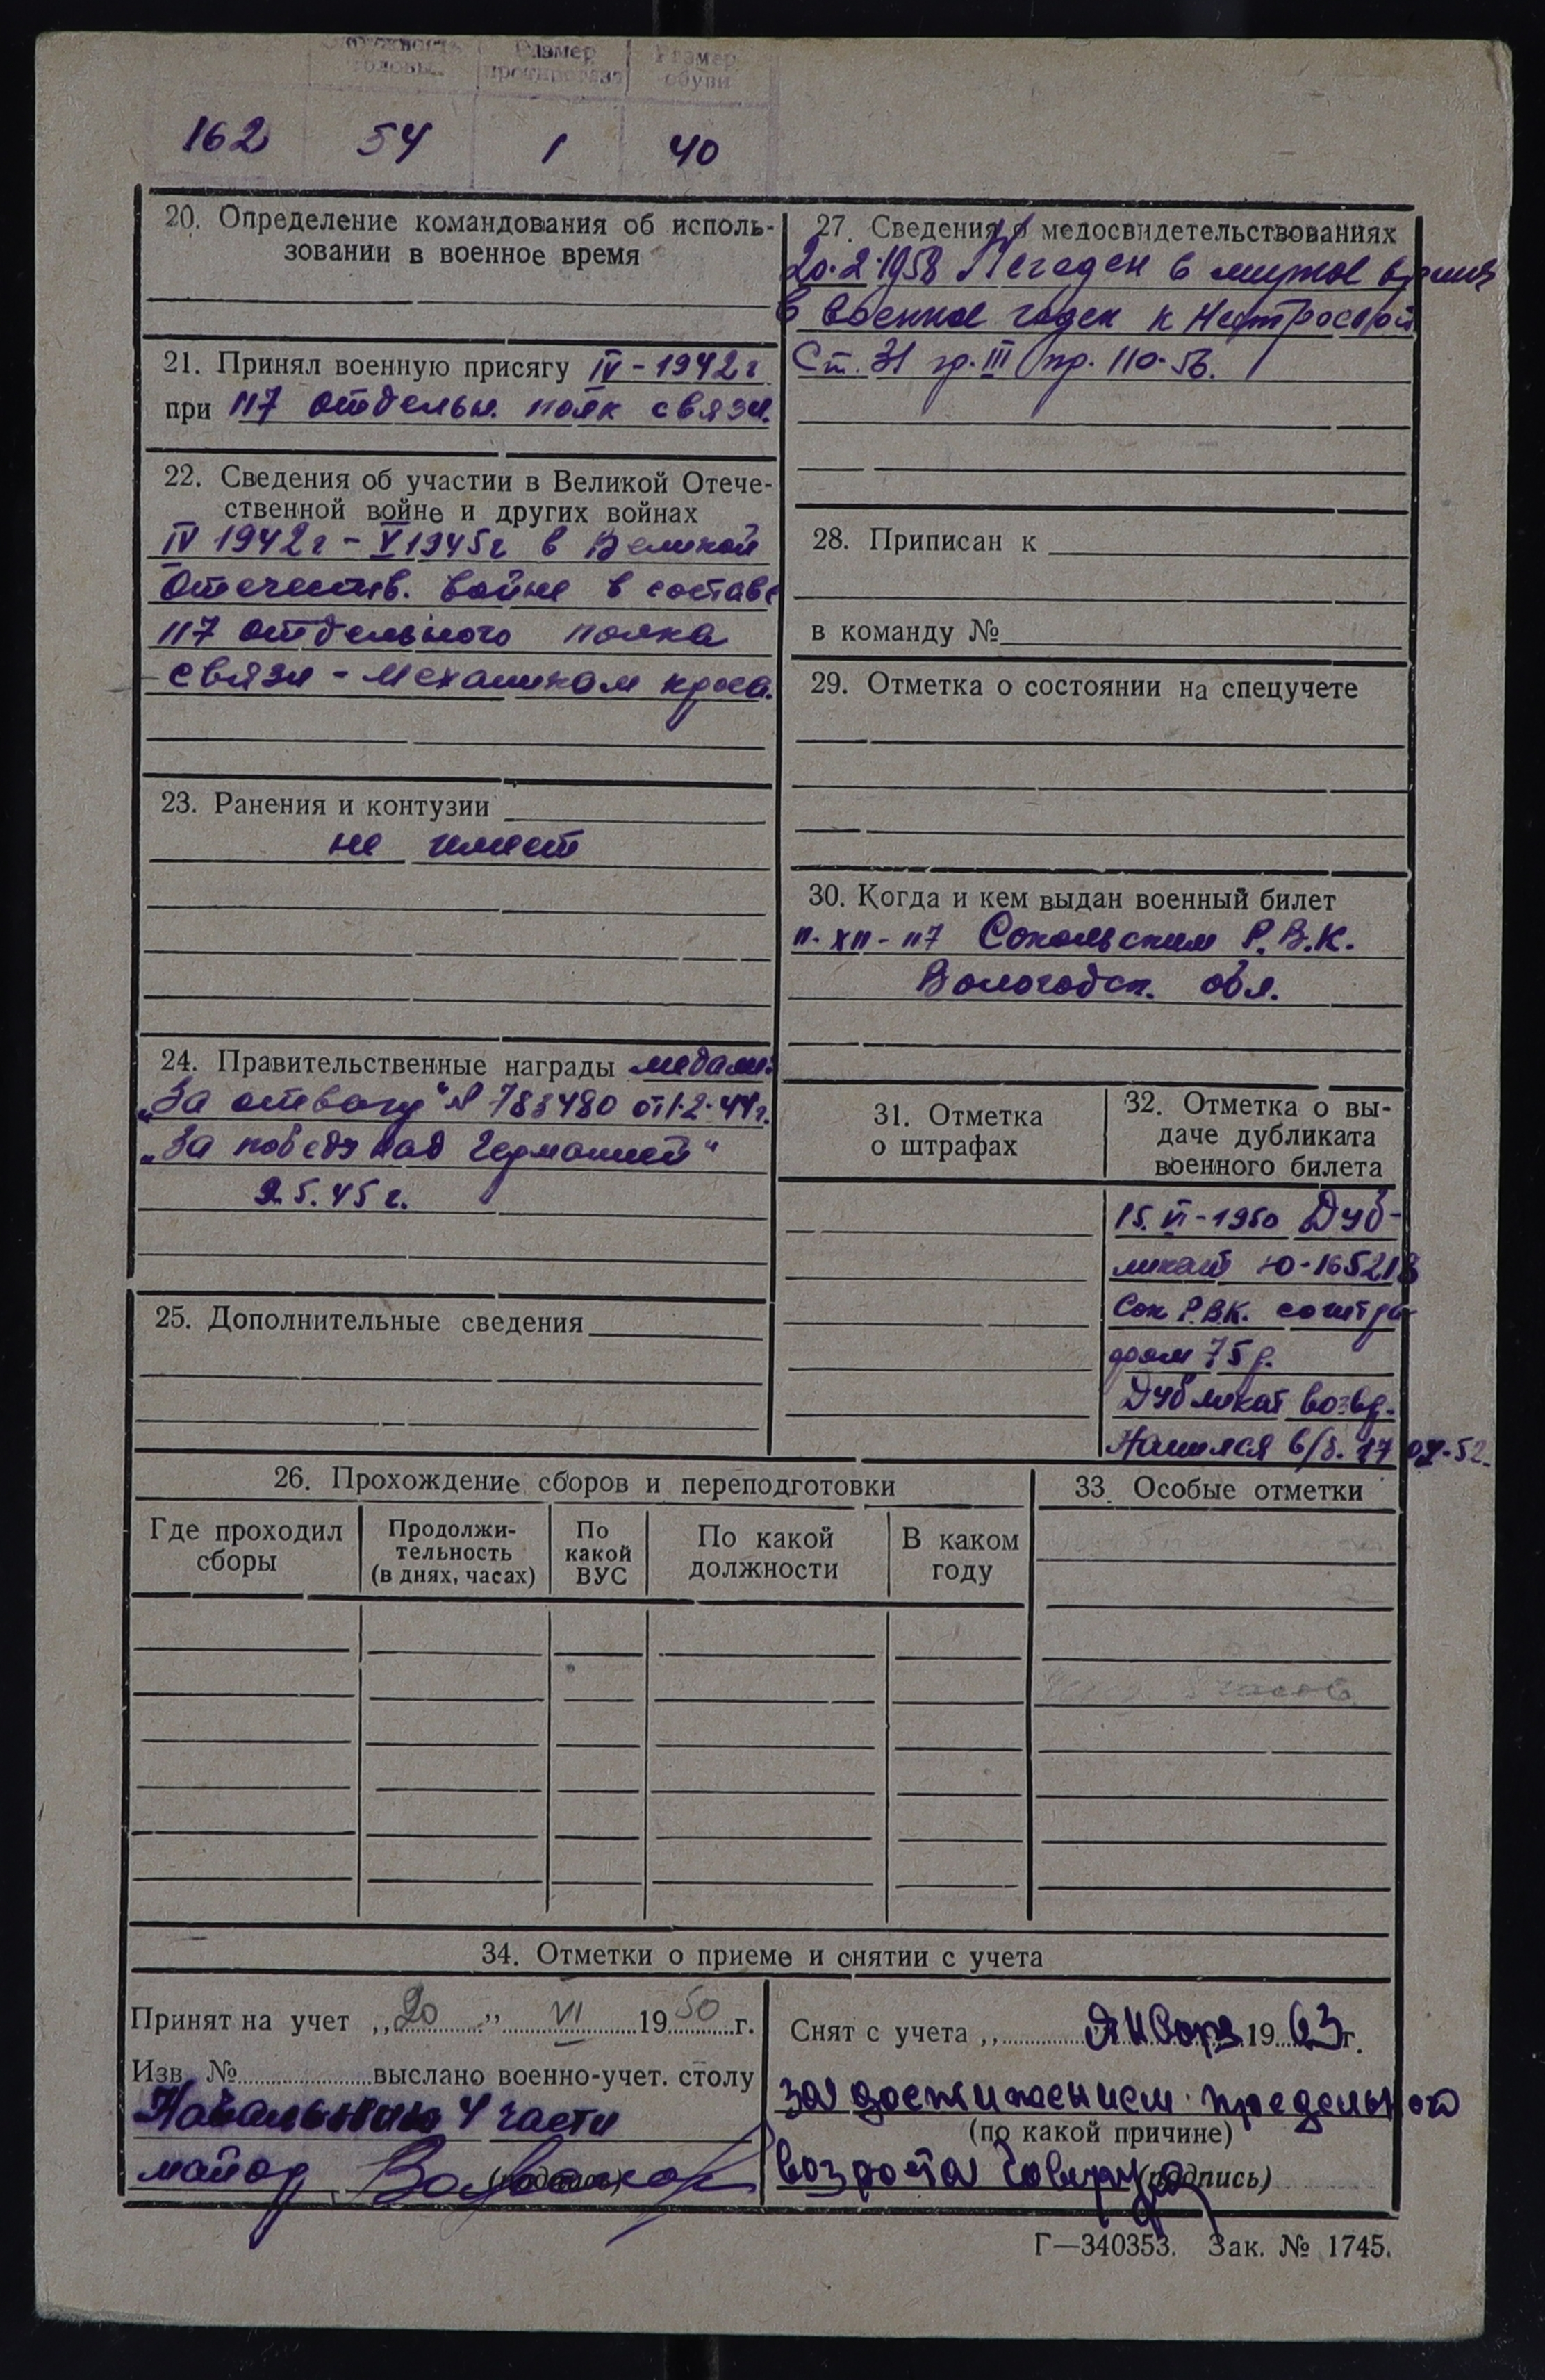 Размер Размер
головы противогаза обуви
162 54 1 40
20. Определение командования об исполь-
зовании в военное время
21. Принял военную присягу IV - 1942 г
при 117 отдельн. полк связи.
22. Сведения об участии в Великой Отече-
ственной войне и других войнах
IV 1942 г - V 1945 г в Великой
Отечеств. войне в составе
117 отдельного полка
связи - механиком кросса.
23. Ранения и контузии
не имеет
24. Правительственные награды медали:
„За отвагу" № 783480 от 1.2.44 г.
„За победу над Германией"
9.5.45 г.
25. Дополнительные сведения
27. Сведения о медосвидетельствованиях
20.2.1958 Негоден в мирное время
в военное годен к Нестроевой
Ст. 31 гр. III пр. 110-56.
28. Приписан к
в команду №
29. Отметка о состоянии на спецучете
30. Когда и кем выдан военный билет
11-XII-47 Сокольским Р.В.К.
Вологодск. обл.
31. Отметка
о штрафах
32. Отметка о вы-
даче дубликата
военного билета
15.VI-1950 Дуб-
ликат Ю-165218
Сок Р.В.К. со штра
фом 75 р.
Дубликат возвр.
Нашелся в/б. 17 04-52.
26. Прохождение сборов и переподготовки
Где проходил
сборы
Продолжи-
тельность
(в днях, часах)
По
какой
ВУС
По какой
должности
В каком
году
33. Особые отметки
34. Отметки о приеме и снятии с учета
Принят на учет „20" VI 1950 г.
Изв. № выслано военно-учет. столу
Начальник 4 части
майор
(подпись)
Снят с учета „ Января 1963 г.
за достижением предельного
(по какой причине)
возраста
(подпись)
Г—340353. Зак. № 1745.